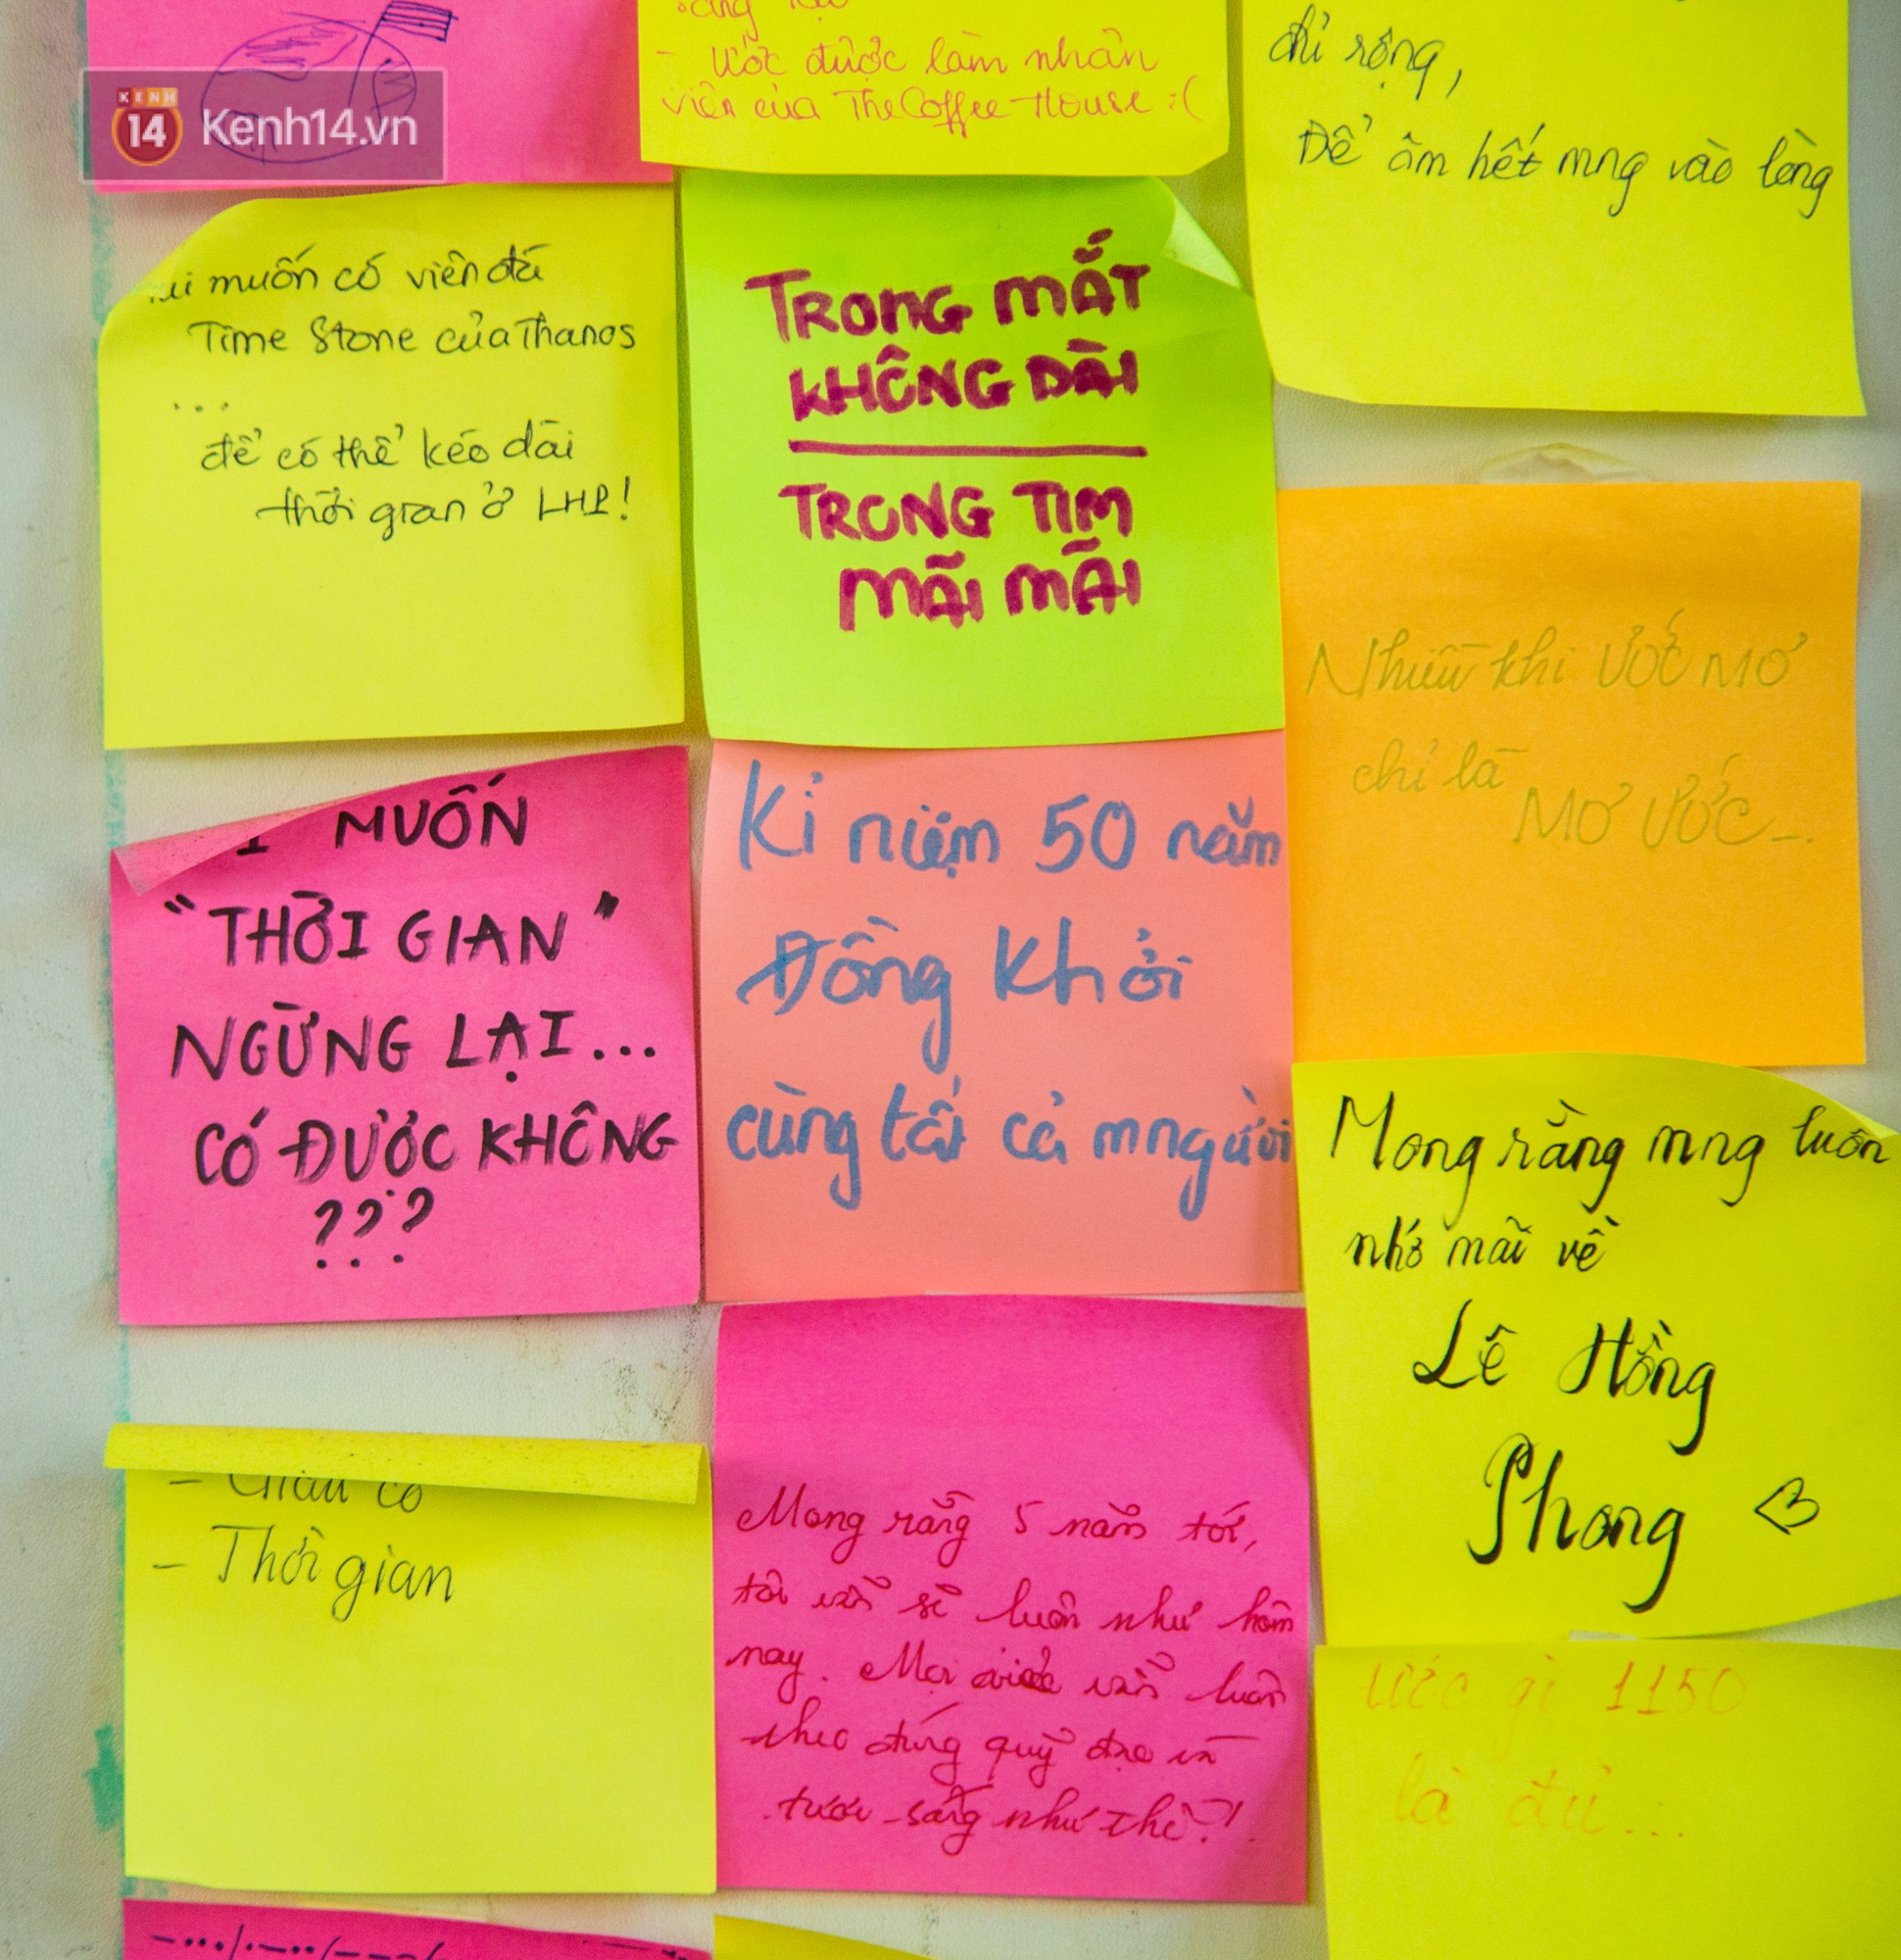 KENH
14
Kenh14.vn
- Ước được làm nhân
viên của The Coffee House :(
chỉ rộng,
Để ôm hết mng vào lòng
muốn có viên đá
Time Stone của Thanos
...
để có thể kéo dài
thời gian ở LHP!
TRONG MẮT
KHÔNG DÀI
TRONG TIM
MÃI MÃI
Nhiều khi ƯỚC MƠ
chỉ là
MƠ ƯỚC...
MUỐN
"THỜI GIAN"
NGỪNG LẠI...
CÓ ĐƯỢC KHÔNG
???
Kỉ niệm 50 năm
Đồng Khởi
cùng tất cả mngười
Mong rằng mng luôn
nhớ mãi về
Lê Hồng
Phong <3
- Giàu có
- Thời gian
Mong rằng 5 năm tới,
tôi vẫn sẽ luôn như hôm
nay. Mọi việc vẫn luôn
theo đúng quỹ đạo và
tươi sáng như thế?!
Ước gì 1150
là đủ...